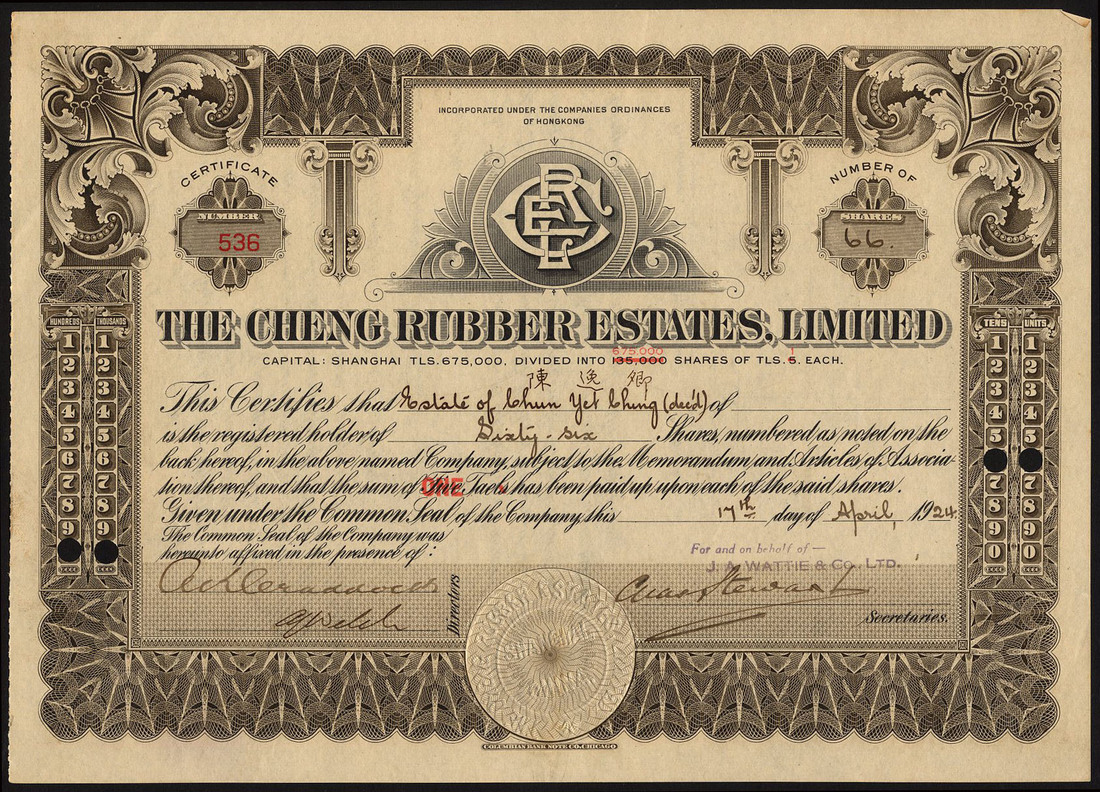 INCORPORATED UNDER THE COMPANIES ORDINANCES
OF HONGKONG
CERTIFICATE
NUMBER
536
NUMBER OF
SHARES
66.
THE CHENG RUBBER ESTATES, LIMITED
675,000 1
CAPITAL: SHANGHAI TLS. 675,000. DIVIDED INTO 135,000 SHARES OF TLS. 5. EACH.
陳 逸 卿
This Certifies that Estate of Chun Yet Ching (dec'd) of
is the registered holder of Sixty-six Shares, numbered as noted on the
back hereof, in the above named Company, subject to the Memorandum and Articles of Associa
tion thereof, and that the sum of ONE Taels has been paid up upon each of the said shares.
Given under the Common Seal of the Company this 17th day of April, 1924.
The Common Seal of the Company was
hereunto affixed in the presence of:
For and on behalf of —
J. A. WATTIE & CO., LTD.
Directors
Secretaries.
HUNDREDS THOUSANDS
1 1
2 2
3 3
4 4
5 5
6 6
7 7
8 8
9 9
TENS UNITS
1 1
2 2
3 3
4 4
5 5
7 7
8 8
9 9
0 0
COLUMBIAN BANK NOTE CO. CHICAGO